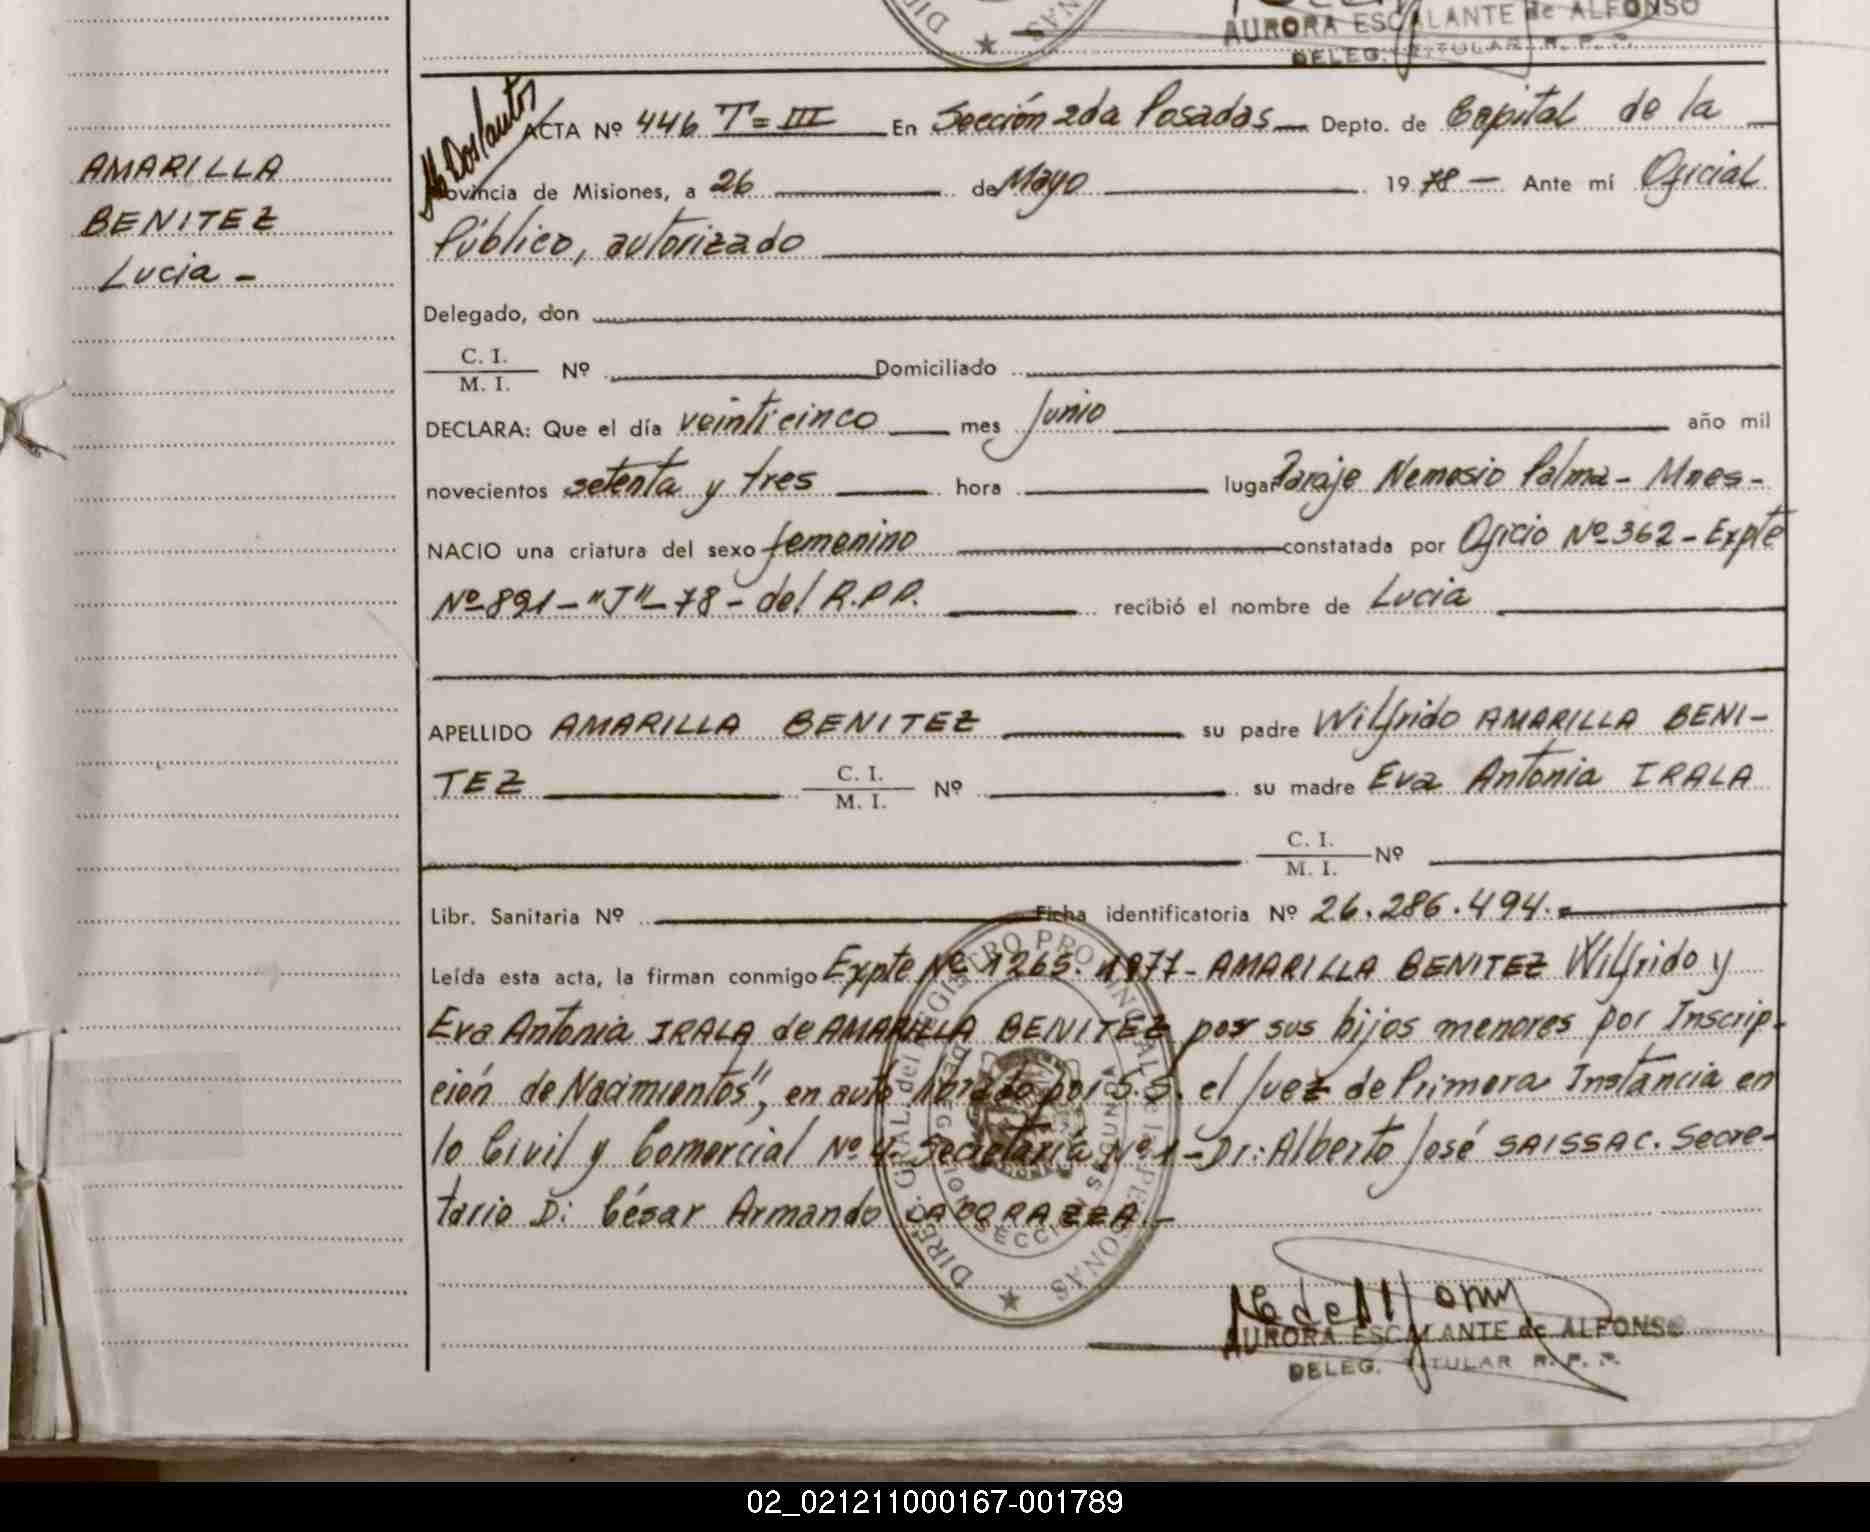 AURORA ESCALANTE de ALFONSO
DELEG. TITULAR R. P. P.
AMARILLA
BENITEZ
Lucia -
ACTA Nº 446 T= III En Sección 2da Posadas Depto. de Capital de la
Provincia de Misiones, a 26 de Mayo 1978 - Ante mí Oficial
Público, autorizado
Delegado, don
C. I.
M. I. Nº Domiciliado
DECLARA: Que el día veinticinco mes Junio año mil
novecientos setenta y tres hora lugar Paraje Nemesio Palma - Mnes -
NACIO una criatura del sexo femenino constatada por Oficio Nº 362 - Expte
Nº 891 - "J" - 78 - del R.P.P. recibió el nombre de Lucia
APELLIDO AMARILLA BENITEZ su padre Wilfrido AMARILLA BENI-
TEZ C. I. M. I. Nº su madre Eva Antonia IRALA
C. I.
M. I. Nº
Libr. Sanitaria Nº Ficha identificatoria Nº 26.286.494.
Leída esta acta, la firman conmigo Expte Nº 1265. 1977 - AMARILLA BENITEZ Wilfrido y
Eva Antonia IRALA de AMARILLA BENITEZ por sus hijos menores por Inscrip-
ción de Nacimientos", en auto librado por S.S. el Juez de Primera Instancia en
lo Civil y Comercial Nº 4 - Secretaría Nº 1 - Dr: Alberto José SAISSAC. Secre-
tario D: César Armando
DIREC. GRAL. del REGISTRO PROVINCIAL de las PERSONAS
DELEGACION SECCION SEGUNDA
AURORA ESCALANTE de ALFONSO
DELEG. TITULAR R. P. P.
02_021211000167-001789